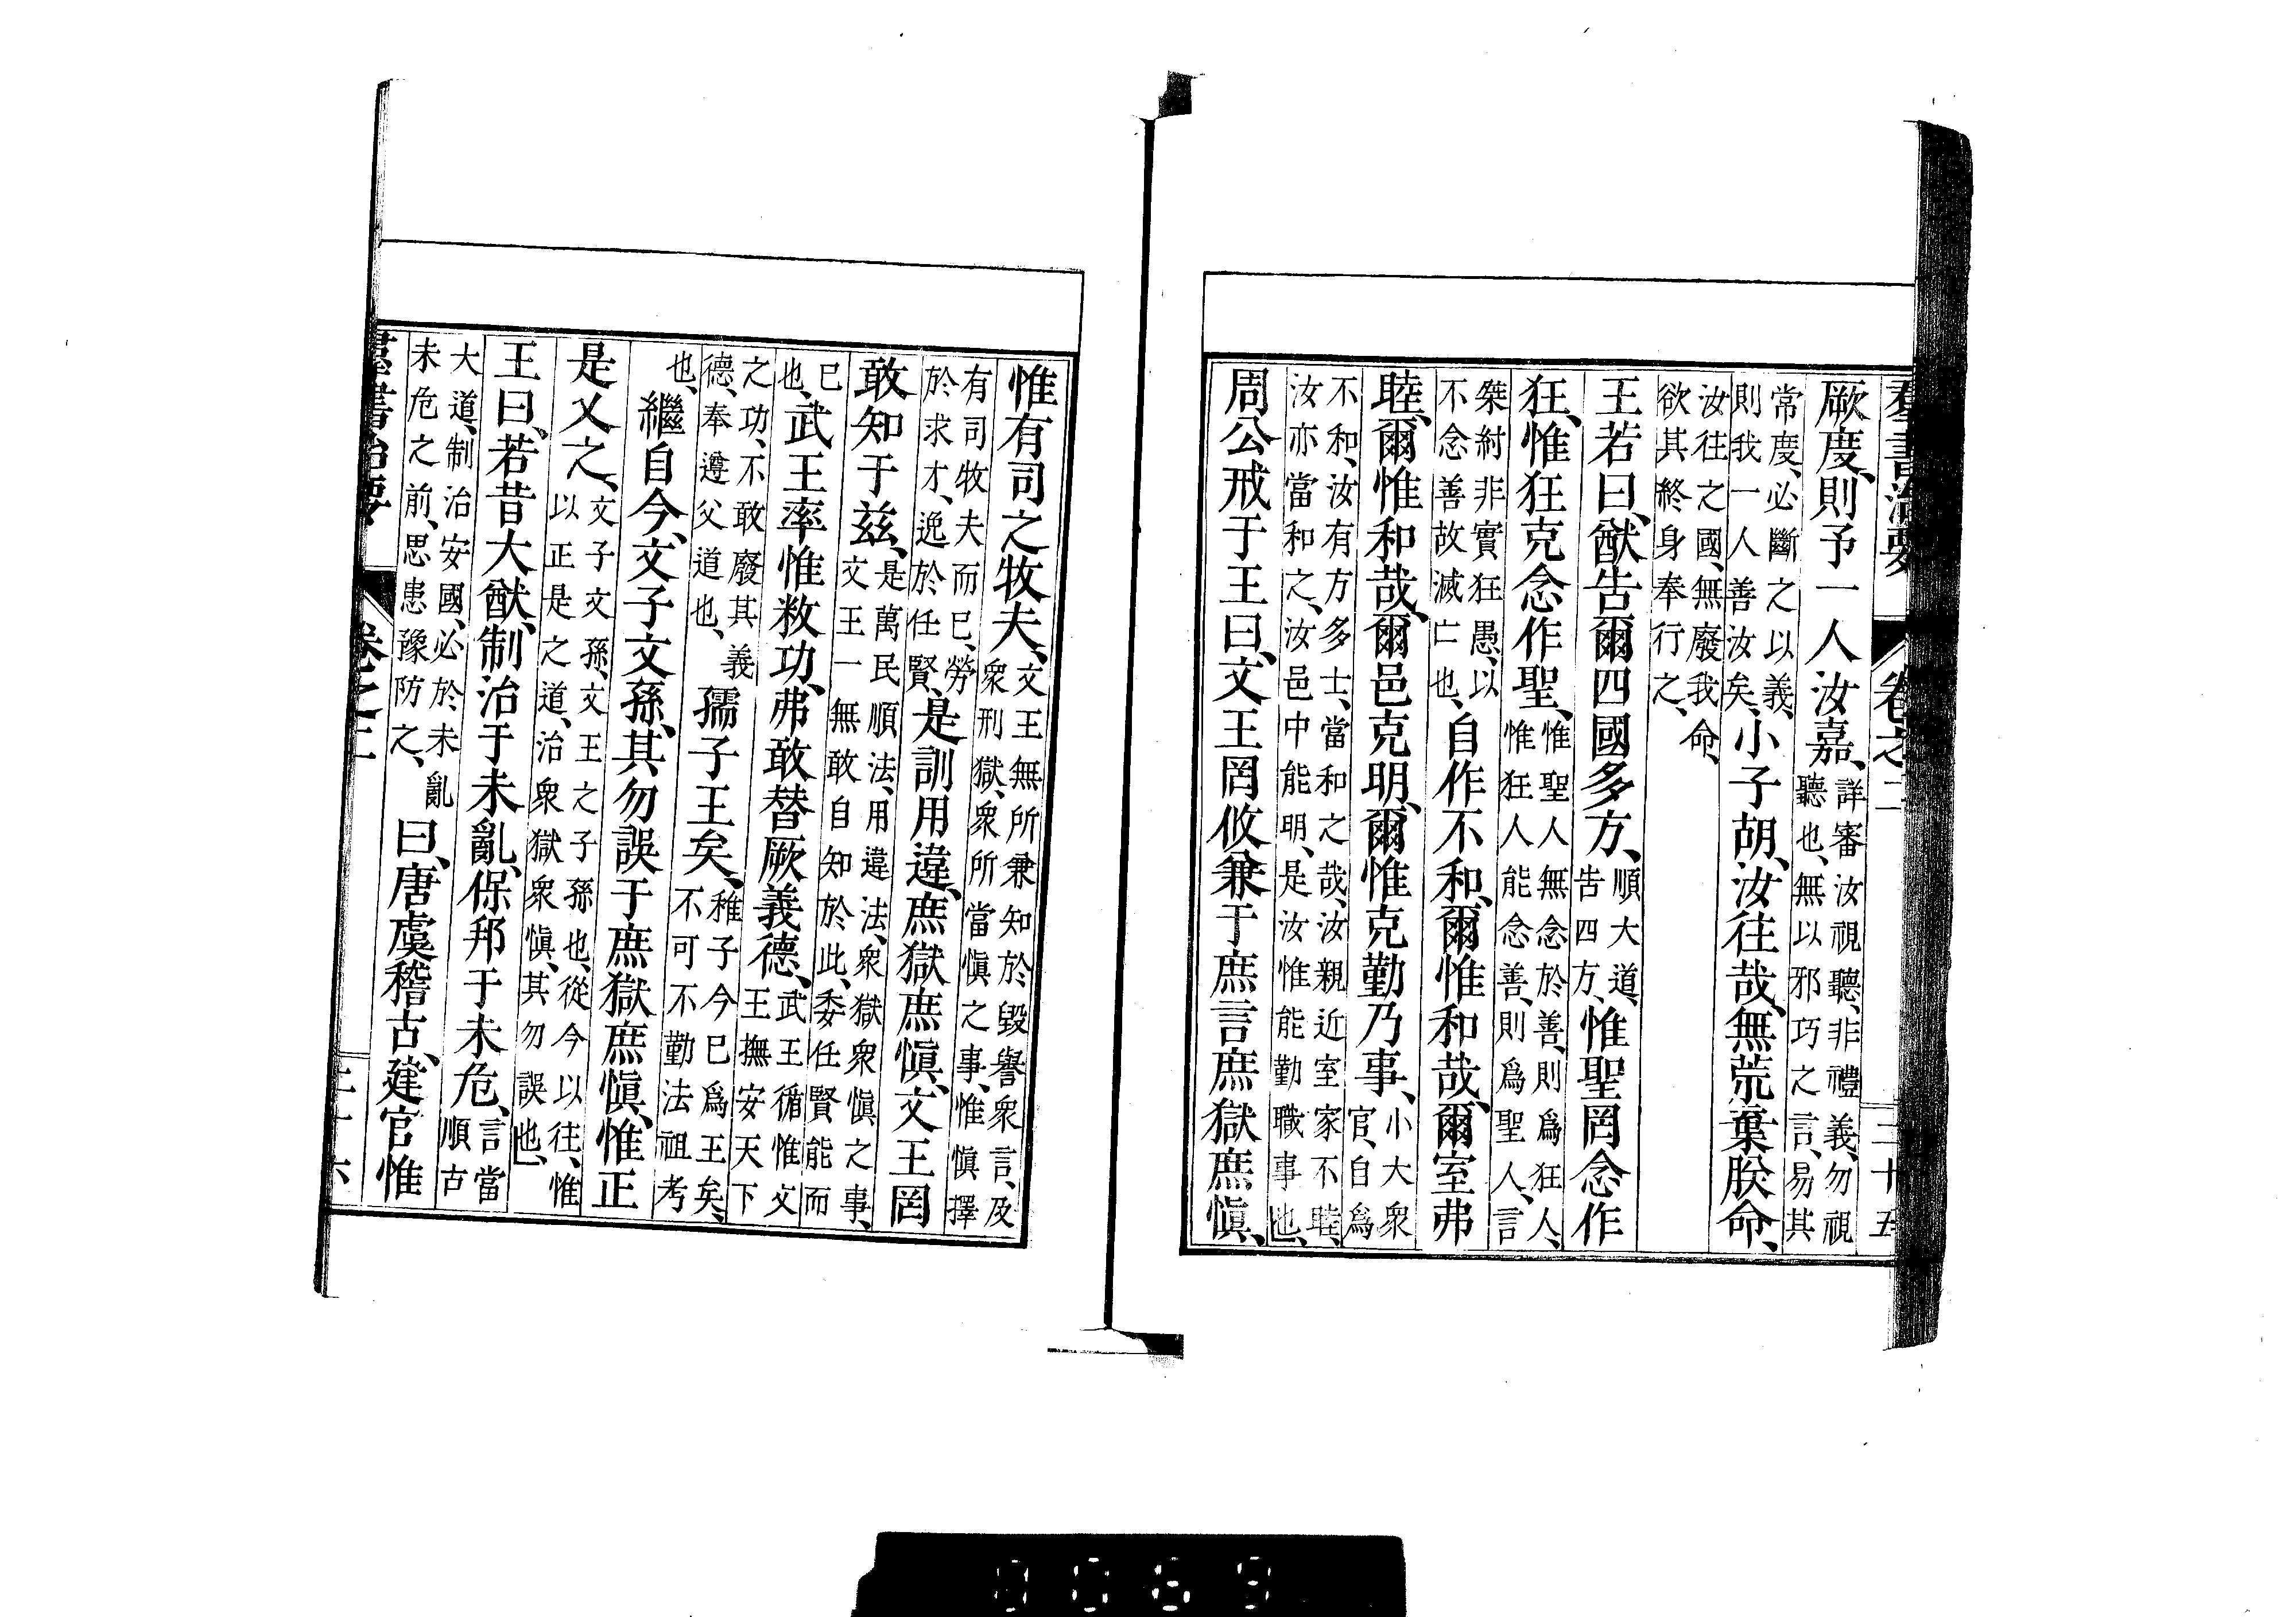 羣書治要 卷之二 三十五
厥度、則予一人汝嘉、詳審汝視聽、非禮義、勿視聽也、無以邪巧之言、易其
常度、必斷之以義、則我一人善汝矣、小子胡、汝往哉、無荒棄朕命、
汝往之國、無廢我命、欲其終身奉行之、
王若曰、猷告爾四國多方、順大道、告四方、惟聖罔念作
狂、惟狂克念作聖、惟聖人無念於善、則爲狂人、惟狂人能念善、則爲聖人、言
桀紂非實狂愚、以不念善故滅亡也、自作不和、爾惟和哉、爾室弗
睦、爾惟和哉、爾邑克明、爾惟克勤乃事、小大衆官、自爲
不和、汝有方多士、當和之哉、汝親近室家不睦、汝亦當和之、汝邑中能明、是汝惟能勤職事也、
周公戒于王曰、文王罔攸兼于庶言庶獄庶愼、
惟有司之牧夫、文王無所兼知於毀譽衆言、及衆刑獄、衆所當愼之事、惟愼擇
有司牧夫而已、勞於求才、逸於任賢、是訓用違、庶獄庶愼、文王罔
敢知于茲、是萬民順法、用違法、衆獄衆愼之事、文王一無敢自知於此、委任賢能而
已也、武王率惟敉功、弗敢替厥義德、武王循惟文王撫安天下
之功、不敢廢其義德、奉遵父道也、孺子王矣、稚子今已爲王矣、不可不勤法祖考
也、繼自今、文子文孫、其勿誤于庶獄庶愼、惟正
是乂之、文子文孫、文王之子孫也、從今以往、惟以正是之道、治衆獄衆愼、其勿誤也、
王曰、若昔大猷、制治于未亂、保邦于未危、言當順古
大道、制治安國、必於未亂未危之前、思患豫防之、曰、唐虞稽古、建官惟
羣書治要 卷之二 三十六